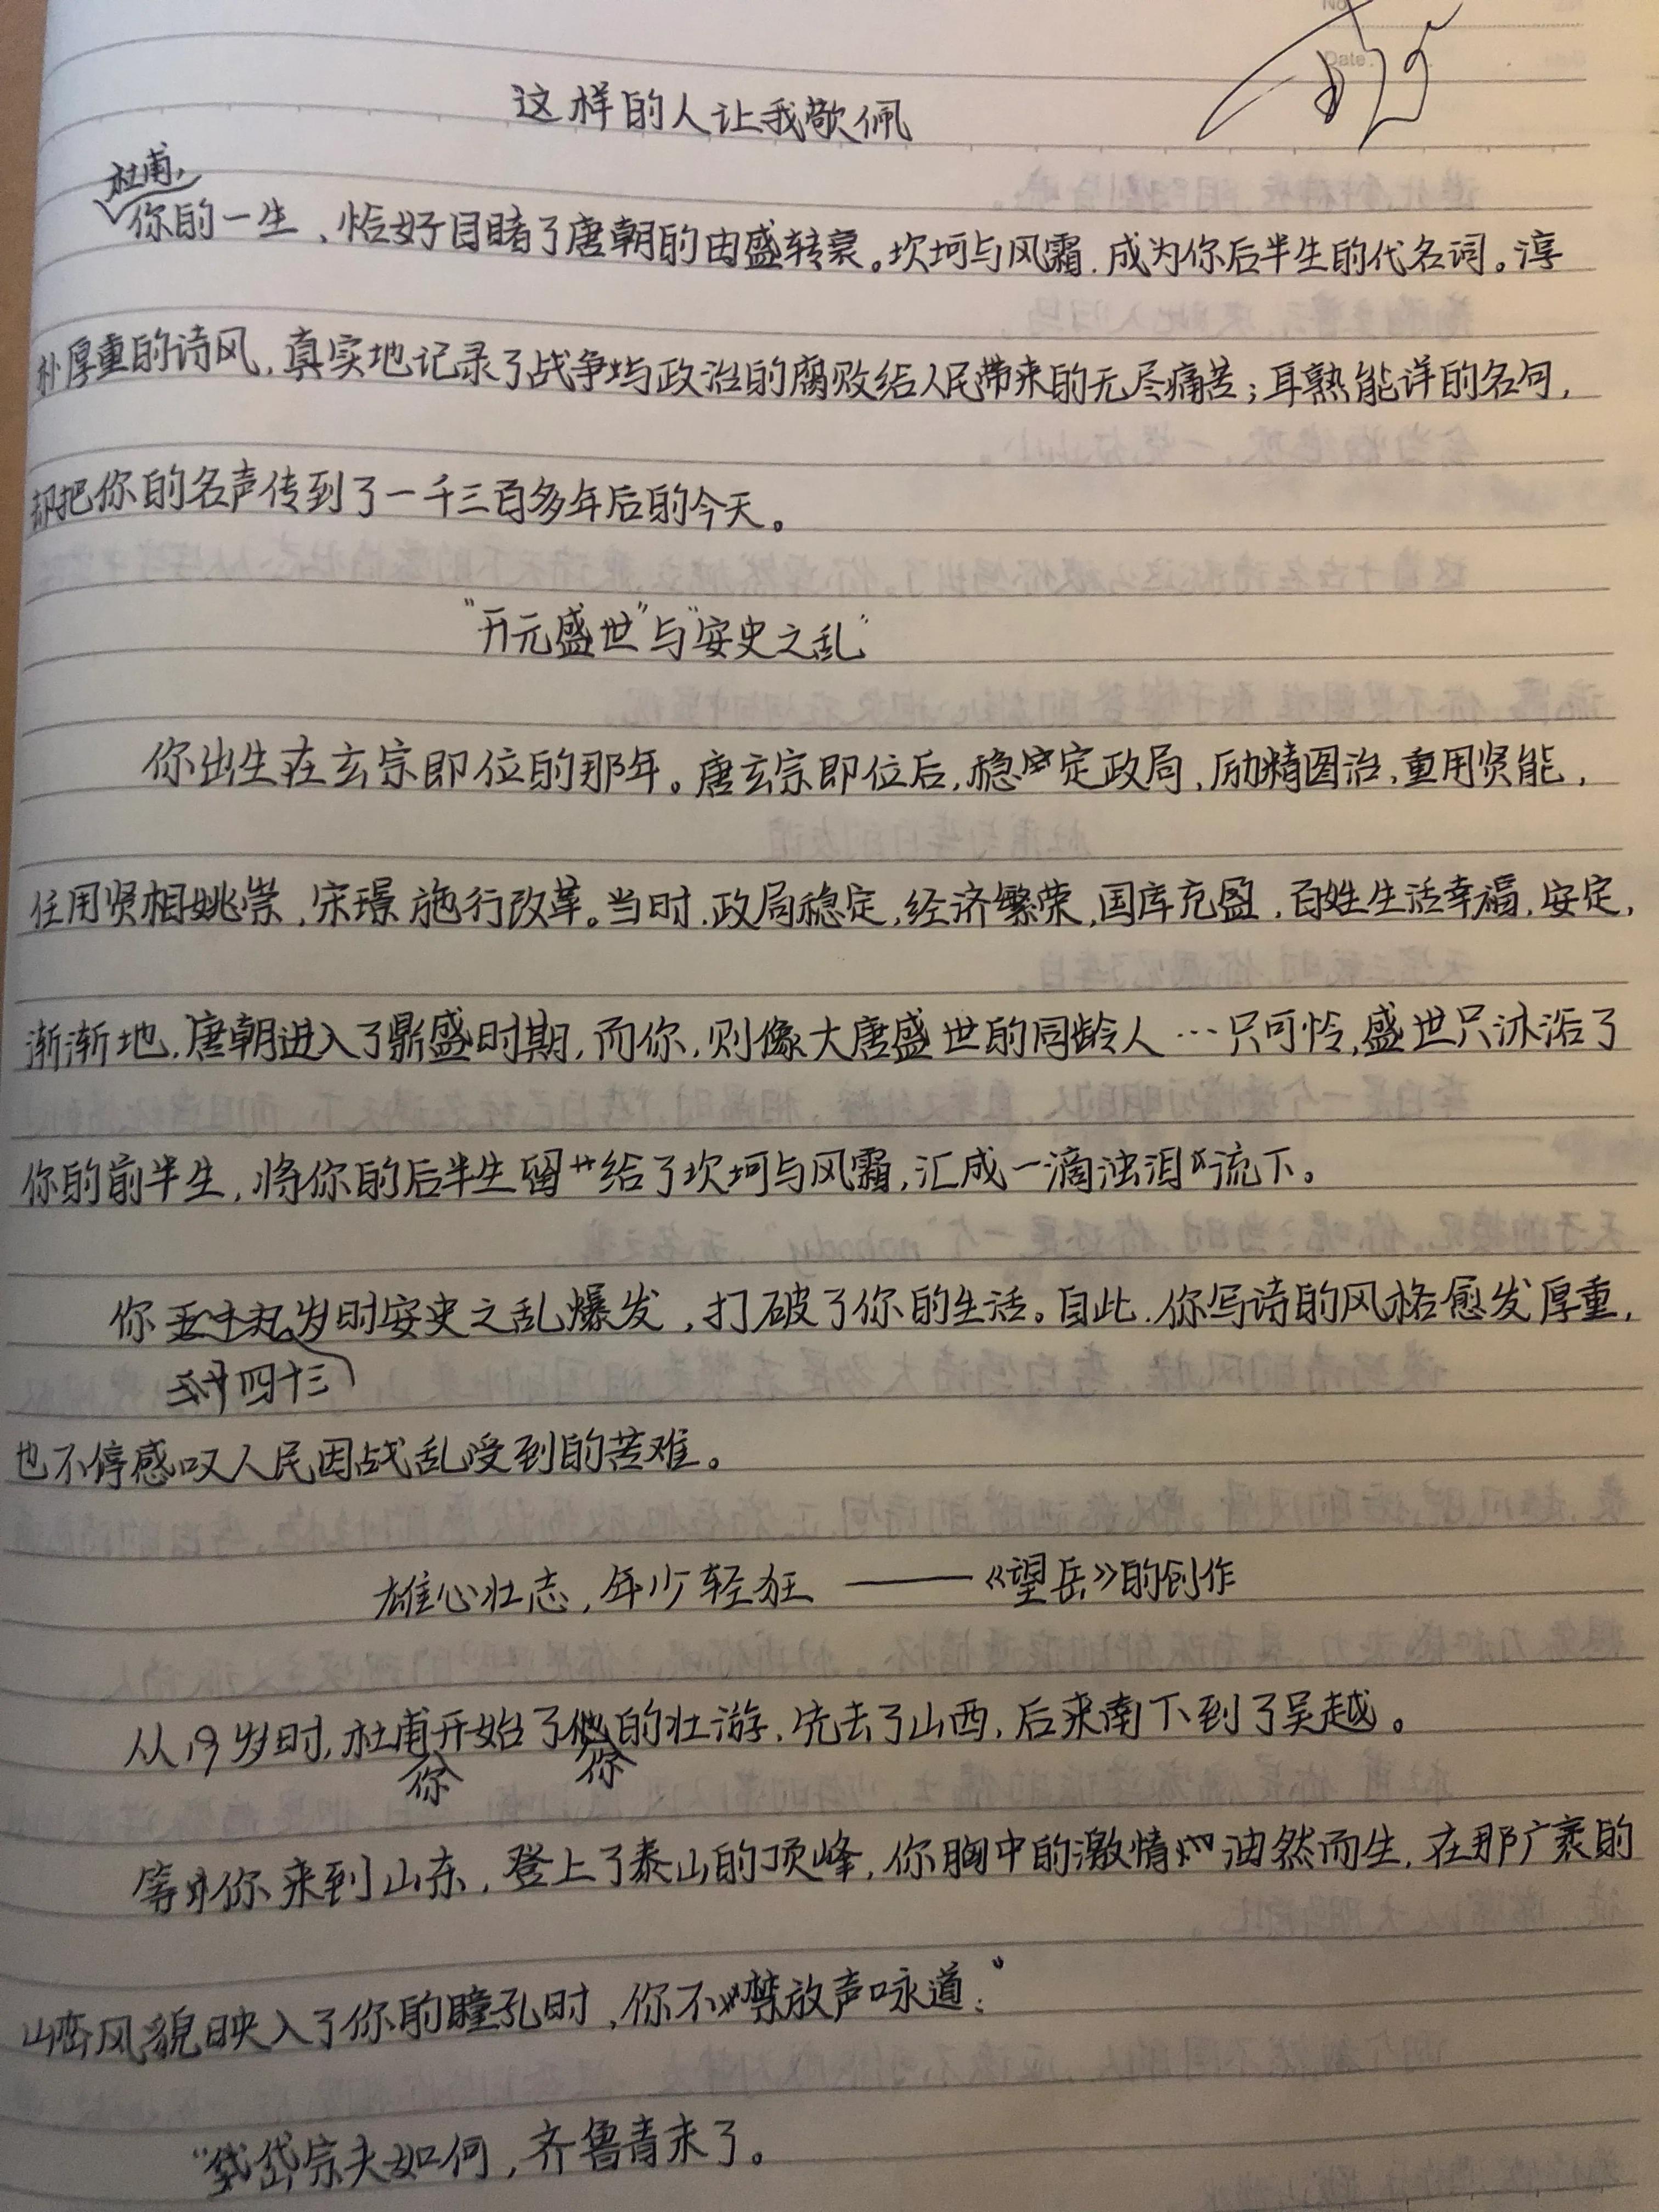 No.
Date.
这样的人让我敬佩
杜甫，
你的一生、恰好目睹了唐朝的由盛转衰。坎坷与风霜，成为你后半生的代名词。淳
朴厚重的诗风，真实地记录了战争与政治的腐败给人民带来的无尽痛苦；耳熟能详的名句，
却把你的名声传到了一千三百多年后的今天。
“开元盛世”与“安史之乱”
你出生在玄宗即位的那年。唐玄宗即位后，稳定政局，励精图治，重用贤能，
任用贤相姚崇，宋璟施行改革。当时，政局稳定，经济繁荣，国库充盈，百姓生活幸福，安定，
渐渐地，唐朝进入了鼎盛时期，而你，则像大唐盛世的同龄人…只可怜，盛世只沐浴了
你的前半生，将你的后半生留给了坎坷与风霜，汇成一滴浊泪流下。
你五十九岁时安史之乱爆发，打破了你的生活。自此，你写诗的风格愈发厚重，
四十三
也不停感叹人民因战乱受到的苦难。
雄心壮志，年少轻狂 ——《望岳》的创作
从19岁时，杜甫开始了他的壮游，先去了山西，后来南下到了吴越。
你 你
等你来到山东，登上了泰山的顶峰，你胸中的激情油然而生，在那广袤的
山峦风貌映入了你的瞳孔时，你不禁放声咏道：“
“岱宗夫如何，齐鲁青未了。